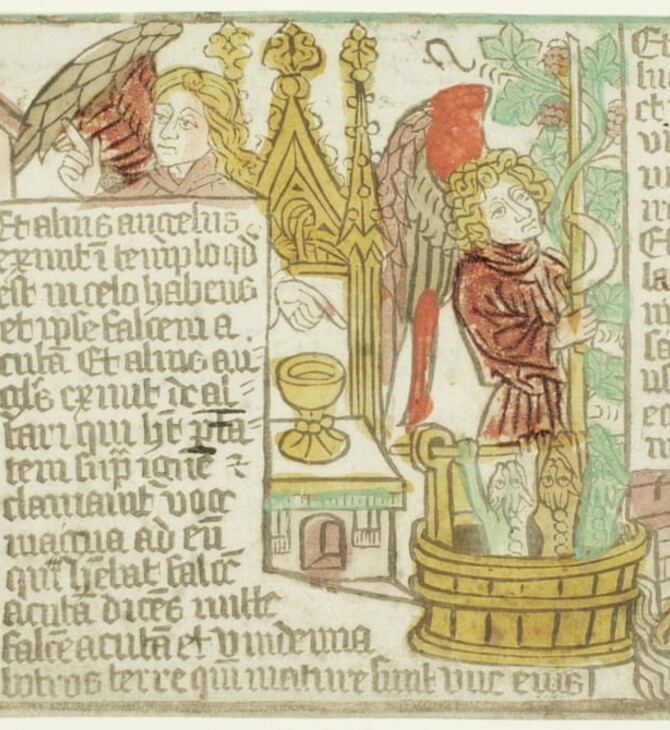 Et alius angelus
exiuit ī templo qd̄
est in celo habens
et ipse falcem a
cutā Et alius an=
gl's exiuit de al=
tari qui ht ptā
tem sup̄ ignē ⁊
clamauit voce
magna ad eū
qui hēbat falcē
acutā dicēs mitte
falcē acutā et vindemia
botros terre qm̄ mature sunt vue eius